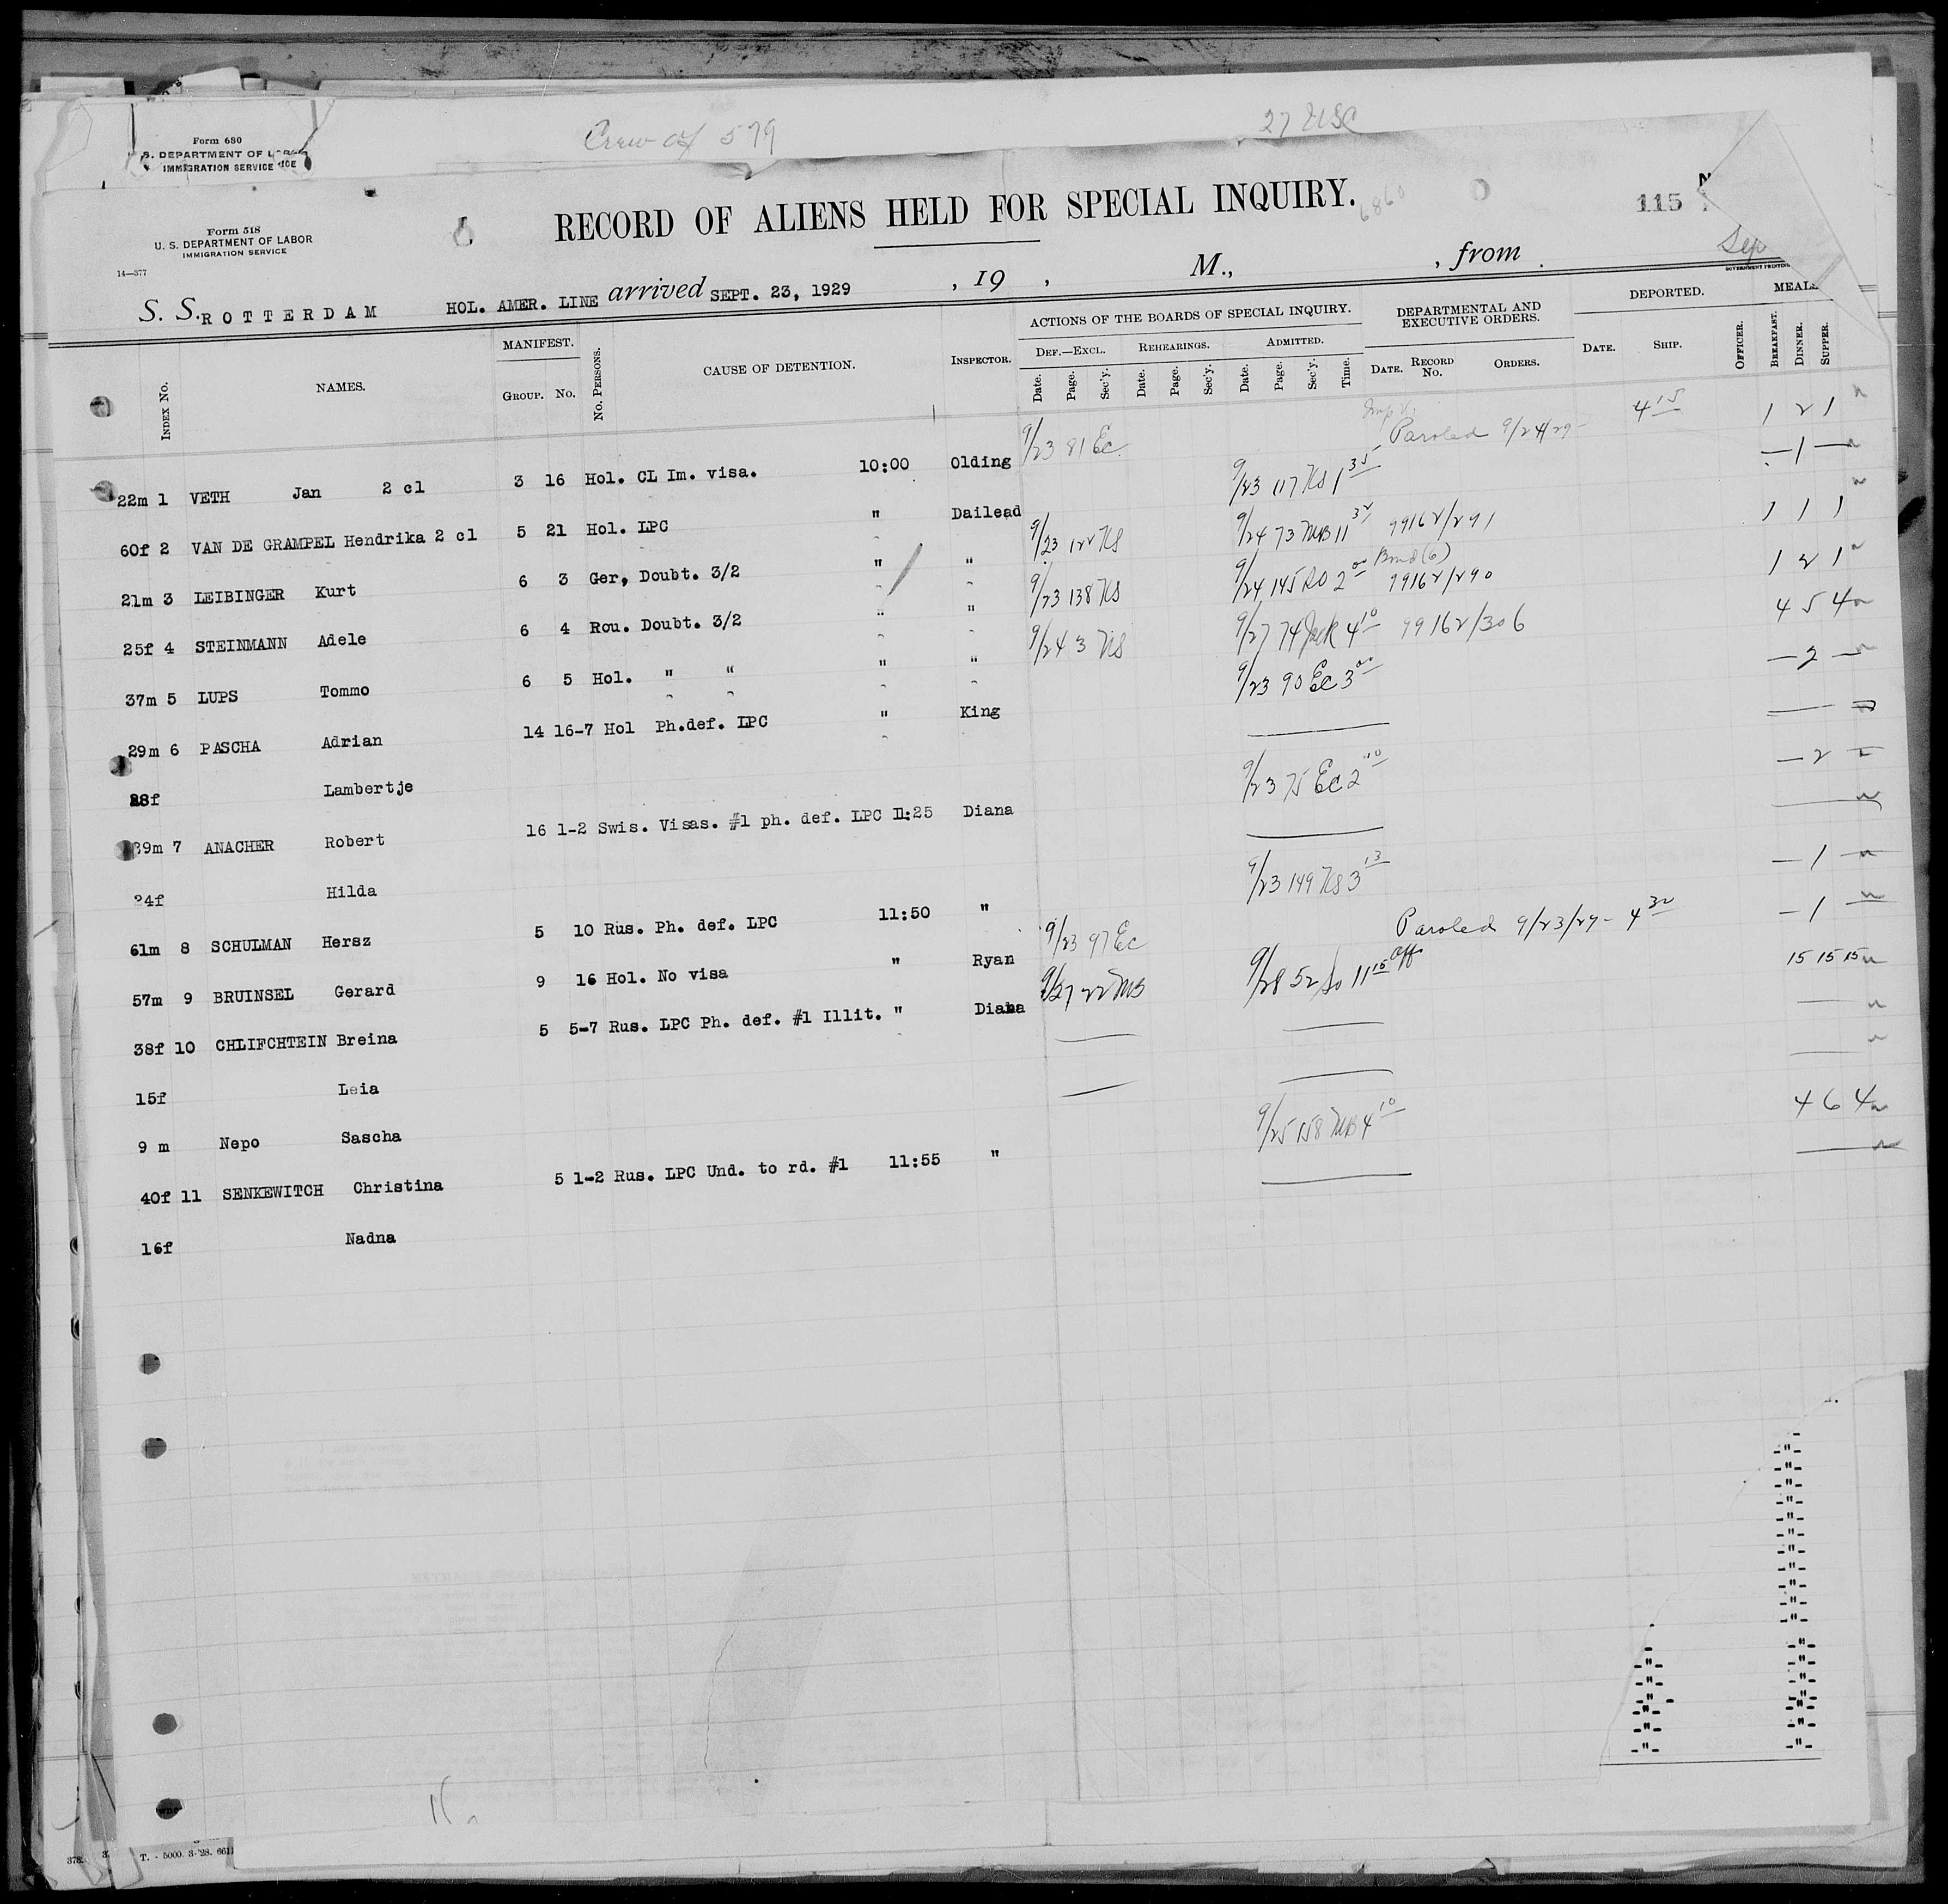 Crew of 579
27 USC
Form 680
S. DEPARTMENT OF
IMMIGRATION SERVICE
Form 518
U. S. DEPARTMENT OF LABOR
IMMIGRATION SERVICE
14—377
RECORD OF ALIENS HELD FOR SPECIAL INQUIRY.
6860
115
Sep
S. S. ROTTERDAM HOL. AMER. LINE arrived SEPT. 23, 1929 , 19 , M., , from
INDEX No. NAMES. MANIFEST. GROUP. No. No. PERSONS. CAUSE OF DETENTION. INSPECTOR. ACTIONS OF THE BOARDS OF SPECIAL INQUIRY. DEPARTMENTAL AND EXECUTIVE ORDERS. DEPORTED.
DEF.—EXCL. REHEARINGS. ADMITTED. DATE. RECORD No. ORDERS. DATE. SHIP. OFFICER. BREAKFAST. DINNER. SUPPER.
Date. Page. Sec'y. Date. Page. Sec'y. Date. Page. Sec'y. Time.
22m 1 VETH Jan 2 cl 3 16 Hol. CL Im. visa. 10:00 Olding 9/23 81 Ec Paroled 9/24/29 - 4 15 1 2 1
60f 2 VAN DE GRAMPEL Hendrika 2 cl 5 21 Hol. LPC " Dailead 9/23 117 KS 1 35 — 1 —
21m 3 LEIBINGER Kurt 6 3 Ger, Doubt. 3/2 " " 9/23 122 KS 9/24 73 MB 11 32 99162/291 1 1 1
25f 4 STEINMANN Adele 6 4 Rou. Doubt. 3/2 " " 9/23 138 KS 9/24 145 2 00 Bond (6) 99162/290 1 2 1
37m 5 LUPS Tommo 6 5 Hol. " " " " 9/24 3 KS 9/27 74 4 10 99162/306 4 5 4
29m 6 PASCHA Adrian 14 16-7 Hol Ph.def. LPC " King 9/23 90 Ec 3 00 — 2 —
28f Lambertje
39m 7 ANACHER Robert 16 1-2 Swis. Visas. #1 ph. def. LPC 11:25 Diana 9/23 75 Ec 2 10 — 2 —
24f Hilda
61m 8 SCHULMAN Hersz 5 10 Rus. Ph. def. LPC 11:50 " 9/23 149 KS 3 13 — 1 —
57m 9 BRUINSEL Gerard 9 16 Hol. No visa " Ryan 9/23 97 Ec Paroled 9/23/29 - 4 30 — 1 —
38f 10 CHLIFCHTEIN Breina 5 5-7 Rus. LPC Ph. def. #1 Illit. " Diana 9/27 22 MB 9/28 52 11 15 15 15 15
15f Leia
9 m Nepo Sascha
40f 11 SENKEWITCH Christina 5 1-2 Rus. LPC Und. to rd. #1 11:55 " 9/25 158 MB 4 10 4 6 4
16f Nadna
T. - 5000. 3-'28. 661